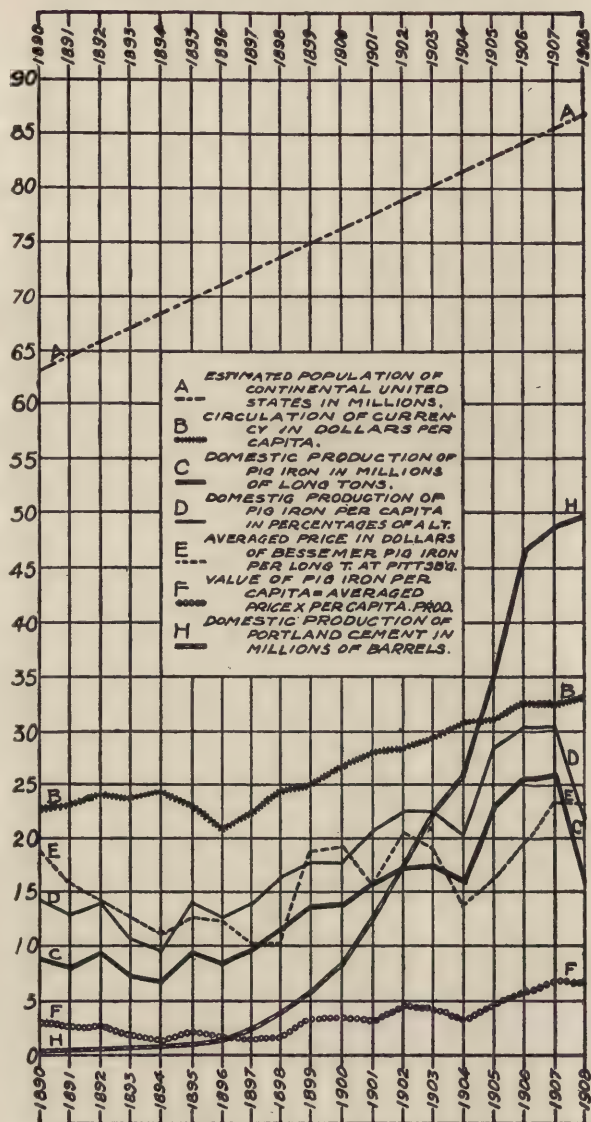 1890 1891 1892 1893 1894 1895 1896 1897 1898 1899 1900 1901 1902 1903 1904 1905 1906 1907 1908
90
85
80
75
70
65
60
55
50
45
40
35
30
25
20
15
10
5
0
A
A
A ESTIMATED POPULATION OF
CONTINENTAL UNITED
STATES IN MILLIONS.
B CIRCULATION OF CURREN-
CY IN DOLLARS PER
CAPITA.
C DOMESTIC PRODUCTION OF
PIG IRON IN MILLIONS
OF LONG TONS.
D DOMESTIC PRODUCTION OF
PIG IRON PER CAPITA
IN PERCENTAGES OF A L.T.
E AVERAGED PRICE IN DOLLARS
OF BESSEMER PIG IRON
PER LONG T. AT PITTSB'G.
F VALUE OF PIG IRON PER
CAPITA = AVERAGED
PRICE X PER CAPITA. PROD.
H DOMESTIC PRODUCTION OF
PORTLAND CEMENT IN
MILLIONS OF BARRELS.
H
B
B
D
E
E
C
D
C
F
F
H
1890 1891 1892 1893 1894 1895 1896 1897 1898 1899 1900 1901 1902 1903 1904 1905 1906 1907 1908